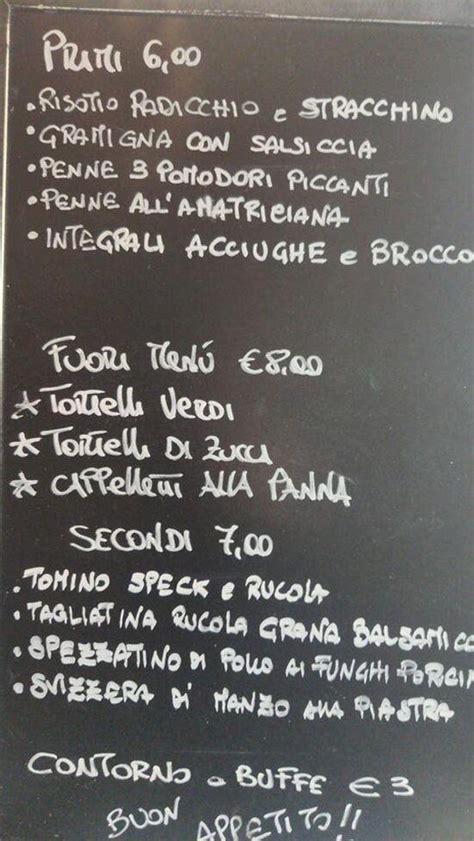 PRIMI 6,00
• RISOTTO RADICCHIO e STRACCHINO
• GRAMIGNA CON SALSICCIA
• PENNE 3 POMODORI PICCANTI
• PENNE ALL'AMATRICIANA
• INTEGRALI ACCIUGHE e BROCCO
FUORI MENÚ €8,00
* TORTELLI VERDI
* TORTELLI DI ZUCCA
* CAPPELLETTI ALLA PANNA
SECONDI 7,00
• TOMINO SPECK e RUCOLA
• TAGLIATINA RUCOLA GRANA BALSAMICO
• SPEZZATINO DI POLLO AI FUNGHI PORCIN
• SVIZZERA DI MANZO ALLA PIASTRA
CONTORNO a BUFFE € 3
BUON APPETITO!!